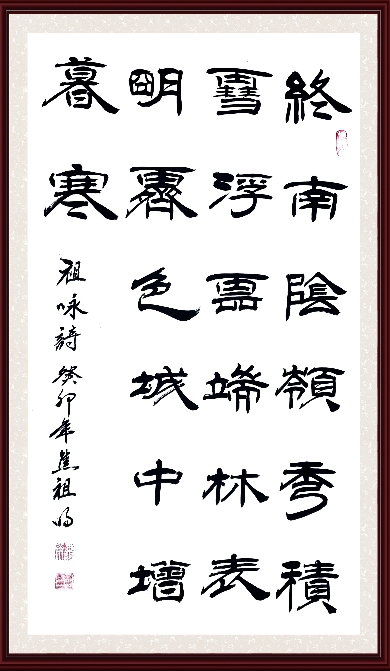 終南陰嶺秀積
雪浮雲端林表
明霽色城中增
暮寒
祖咏詩癸卯年焦祖